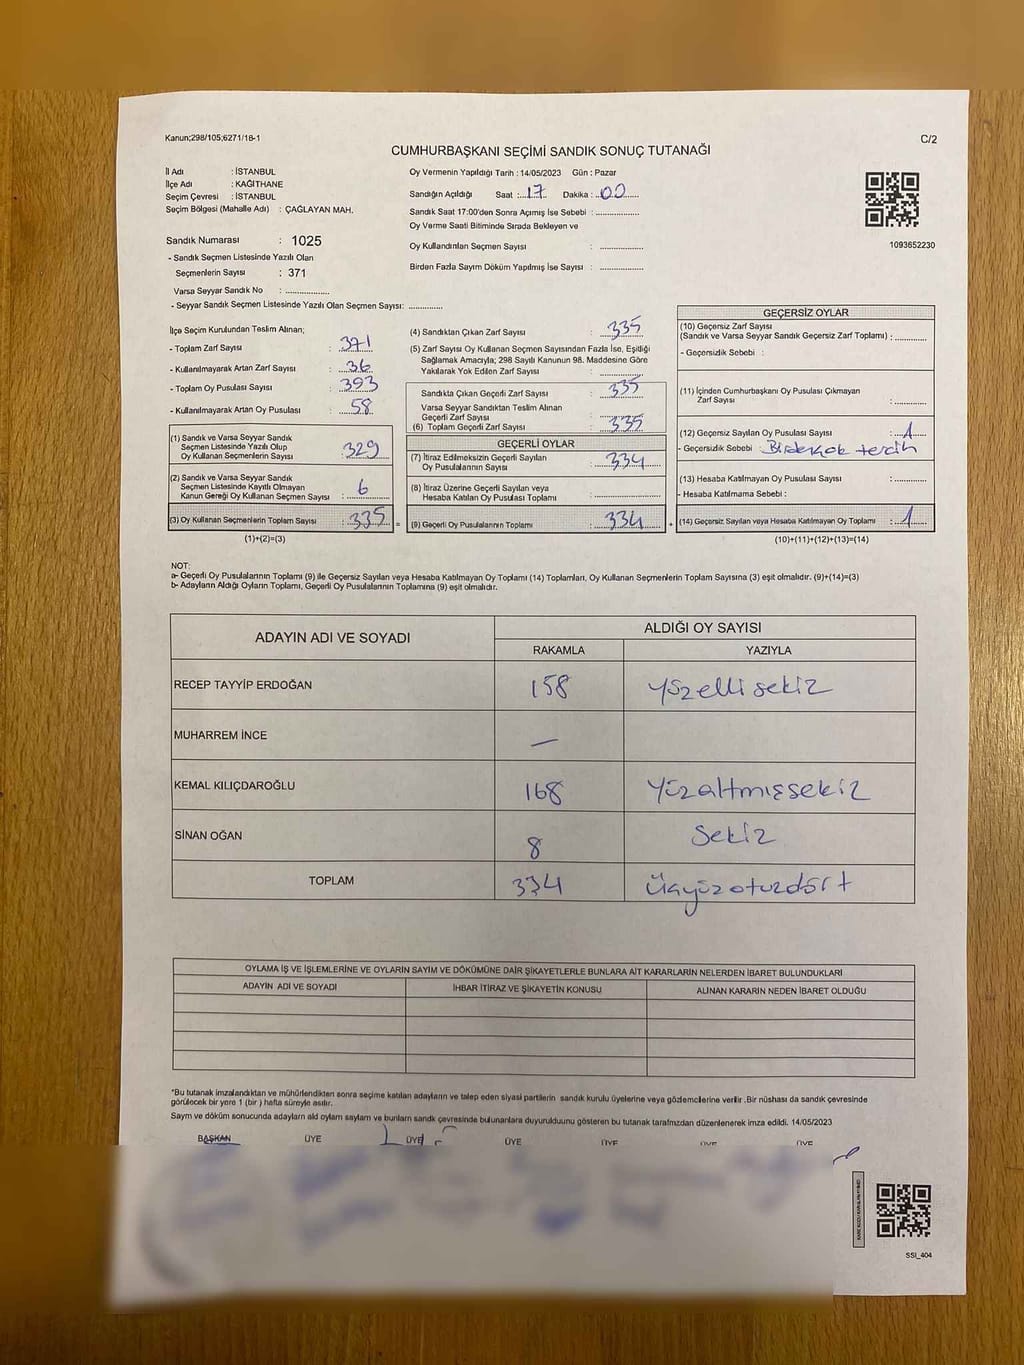 Kanun;298/105;6271/18-1
C/2
CUMHURBAŞKANI SEÇİMİ SANDIK SONUÇ TUTANAĞI
İl Adı : İSTANBUL
İlçe Adı : KAĞITHANE
Seçim Çevresi : İSTANBUL
Seçim Bölgesi (Mahalle Adı) : ÇAĞLAYAN MAH.
Sandık Numarası : 1025
- Sandık Seçmen Listesinde Yazılı Olan
Seçmenlerin Sayısı : 371
Varsa Seyyar Sandık No : ..................
- Seyyar Sandık Seçmen Listesinde Yazılı Olan Seçmen Sayısı: .............
Oy Vermenin Yapıldığı Tarih : 14/05/2023 Gün : Pazar
Sandığın Açıldığı Saat : 17 Dakika : 00
Sandık Saat 17:00'den Sonra Açımış İse Sebebi : ..................
Oy Verme Saati Bitiminde Sırada Bekleyen ve
Oy Kullandırılan Seçmen Sayısı : ..................
Birden Fazla Sayım Döküm Yapılmış İse Sayısı : ..................
1093652230
İlçe Seçim Kurulundan Teslim Alınan;
- Toplam Zarf Sayısı : 371
- Kullanılmayarak Artan Zarf Sayısı : 36
- Toplam Oy Pusulası Sayısı : 393
- Kullanılmayarak Artan Oy Pusulası : 58
(1) Sandık ve Varsa Seyyar Sandık
Seçmen Listesinde Yazılı Olup
Oy Kullanan Seçmenlerin Sayısı : 329
(2) Sandık ve Varsa Seyyar Sandık
Seçmen Listesinde Kayıtlı Olmayan
Kanun Gereği Oy Kullanan Seçmen Sayısı : 6
(3) Oy Kullanan Seçmenlerin Toplam Sayısı : 335 =
(1)+(2)=(3)
(4) Sandıktan Çıkan Zarf Sayısı : 335
(5) Zarf Sayısı Oy Kullanan Seçmen Sayısından Fazla İse, Eşitliği
Sağlamak Amacıyla; 298 Sayılı Kanunun 98. Maddesine Göre
Yakılarak Yok Edilen Zarf Sayısı : ..............
Sandıkta Çıkan Geçerli Zarf Sayısı : 335
Varsa Seyyar Sandıktan Teslim Alınan
Geçerli Zarf Sayısı :
(6) Toplam Geçerli Zarf Sayısı : 335
GEÇERLİ OYLAR
(7) İtiraz Edilmeksizin Geçerli Sayılan
Oy Pusulalarının Sayısı : 334
(8) İtiraz Üzerine Geçerli Sayılan veya
Hesaba Katılan Oy Pusulası Toplamı : ..................
(9) Geçerli Oy Pusulalarının Toplamı : 334 +
GEÇERSİZ OYLAR
(10) Geçersiz Zarf Sayısı
(Sandık ve Varsa Seyyar Sandık Geçersiz Zarf Toplamı) : ..............
- Geçersizlik Sebebi :
(11) İçinden Cumhurbaşkanı Oy Pusulası Çıkmayan
Zarf Sayısı : .............
(12) Geçersiz Sayılan Oy Pusulası Sayısı : 1
- Geçersizlik Sebebi : Birdençok tercih
(13) Hesaba Katılmayan Oy Pusulası Sayısı : .............
- Hesaba Katılmama Sebebi :
(14) Geçersiz Sayılan veya Hesaba Katılmayan Oy Toplamı : 1
(10)+(11)+(12)+(13)=(14)
NOT:
a- Geçerli Oy Pusulalarının Toplamı (9) ile Geçersiz Sayılan veya Hesaba Katılmayan Oy Toplamı (14) Toplamları, Oy Kullanan Seçmenlerin Toplam Sayısına (3) eşit olmalıdır. (9)+(14)=(3)
b- Adayların Aldığı Oyların Toplamı, Geçerli Oy Pusulalarının Toplamına (9) eşit olmalıdır.
ADAYIN ADI VE SOYADI ALDIĞI OY SAYISI
RAKAMLA YAZIYLA
RECEP TAYYİP ERDOĞAN 158 yüzellisekiz
MUHARREM İNCE —
KEMAL KILIÇDAROĞLU 168 yüzaltmışsekiz
SİNAN OĞAN 8 Sekiz
TOPLAM 334 Üçyüzotuzdört
OYLAMA İŞ VE İŞLEMLERİNE VE OYLARIN SAYIM VE DÖKÜMÜNE DAİR ŞİKAYETLERLE BUNLARA AİT KARARLARIN NELERDEN İBARET BULUNDUKLARI
ADAYIN ADI VE SOYADI İHBAR İTİRAZ VE ŞİKAYETİN KONUSU ALINAN KARARIN NEDEN İBARET OLDUĞU
*Bu tutanak imzalandıktan ve mühürlendikten sonra seçime katılan adayların ve talep eden siyasi partilerin sandık kurulu üyelerine veya gözlemcilerine verilir .Bir nüshası da sandık çevresinde
görülecek bir yere 1 (bir ) hafta süreyle asılır.
Sayım ve döküm sonucunda adayların ald oyların sayları ve bunların sandık çevresinde bulunanlara duyurulduunu gösteren bu tutanak tarafmzdan düzenlenerek imza edildi. 14/05/2023
BAŞKAN ÜYE ÜYE ÜYE ÜYE ÜYE ÜYE
SSI_404